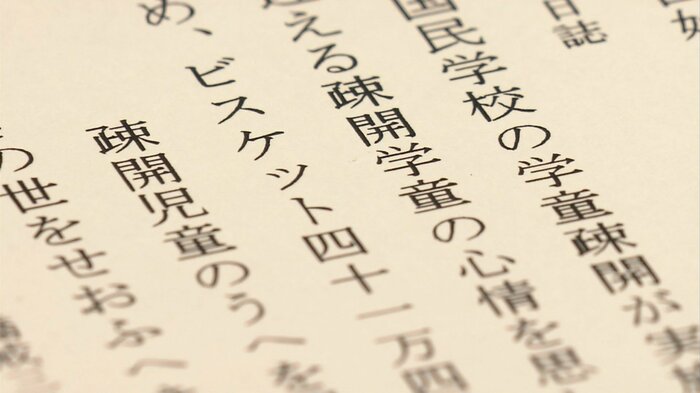 日誌
国民学校の学童疎開が実施
える疎開学童の心情を思
め、ビスケット四十一万四
疎開児童のうへを
の世をせおふへき